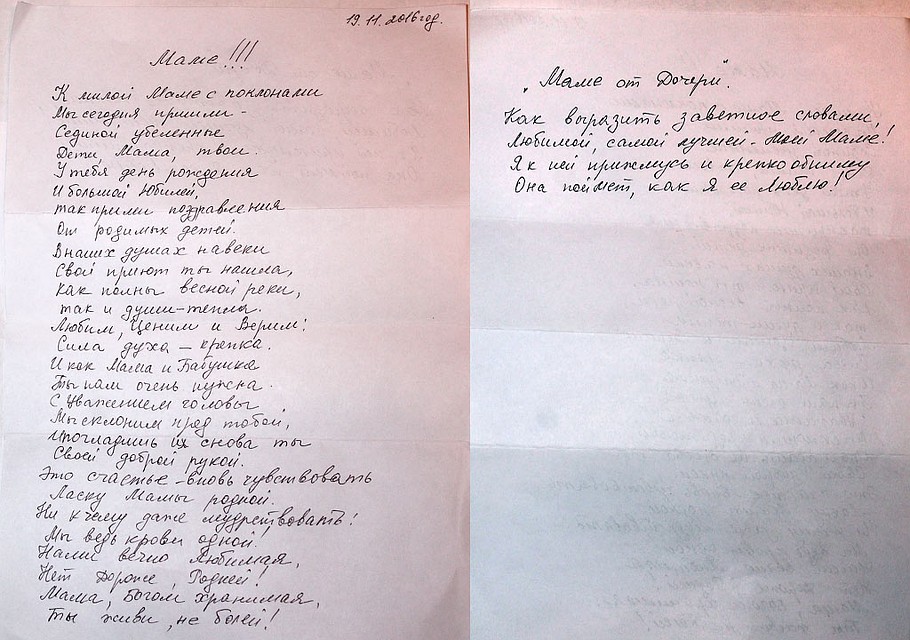 19.11.2016 год.
Маме!!!
К милой Маме с поклонами
Мы сегодня пришли -
Сединой убеленные
Дети, Мама, твои.
У тебя день рождения
И большой Юбилей,
так прими поздравления
От родимых детей.
В наших душах навеки
Свой приют ты нашла,
Как полны весной реки,
так и души - теплы.
Любим, Ценим и Верим:
Сила духа - крепка.
И как Мама и Бабушка
Ты нам очень нужна.
С Уважением головы
Мы склоним пред тобой,
Ипогладишь их снова ты
Своей доброй рукой.
Это счастье - вновь чувствовать
Ласку Мамы родной.
Ни к чему даже мудрствовать!
Мы ведь крови одной!
Нами вечно Любимая,
Нет Дороже, Родней!
Мама, Богом хранимая,
Ты живи, не болей!
"Маме от Дочери".
Как выразить заветное словами,
Любимой, самой лучшей - моей Маме!
Я к ней прижмусь и крепко обниму
Она поймет, как Я ее Люблю!